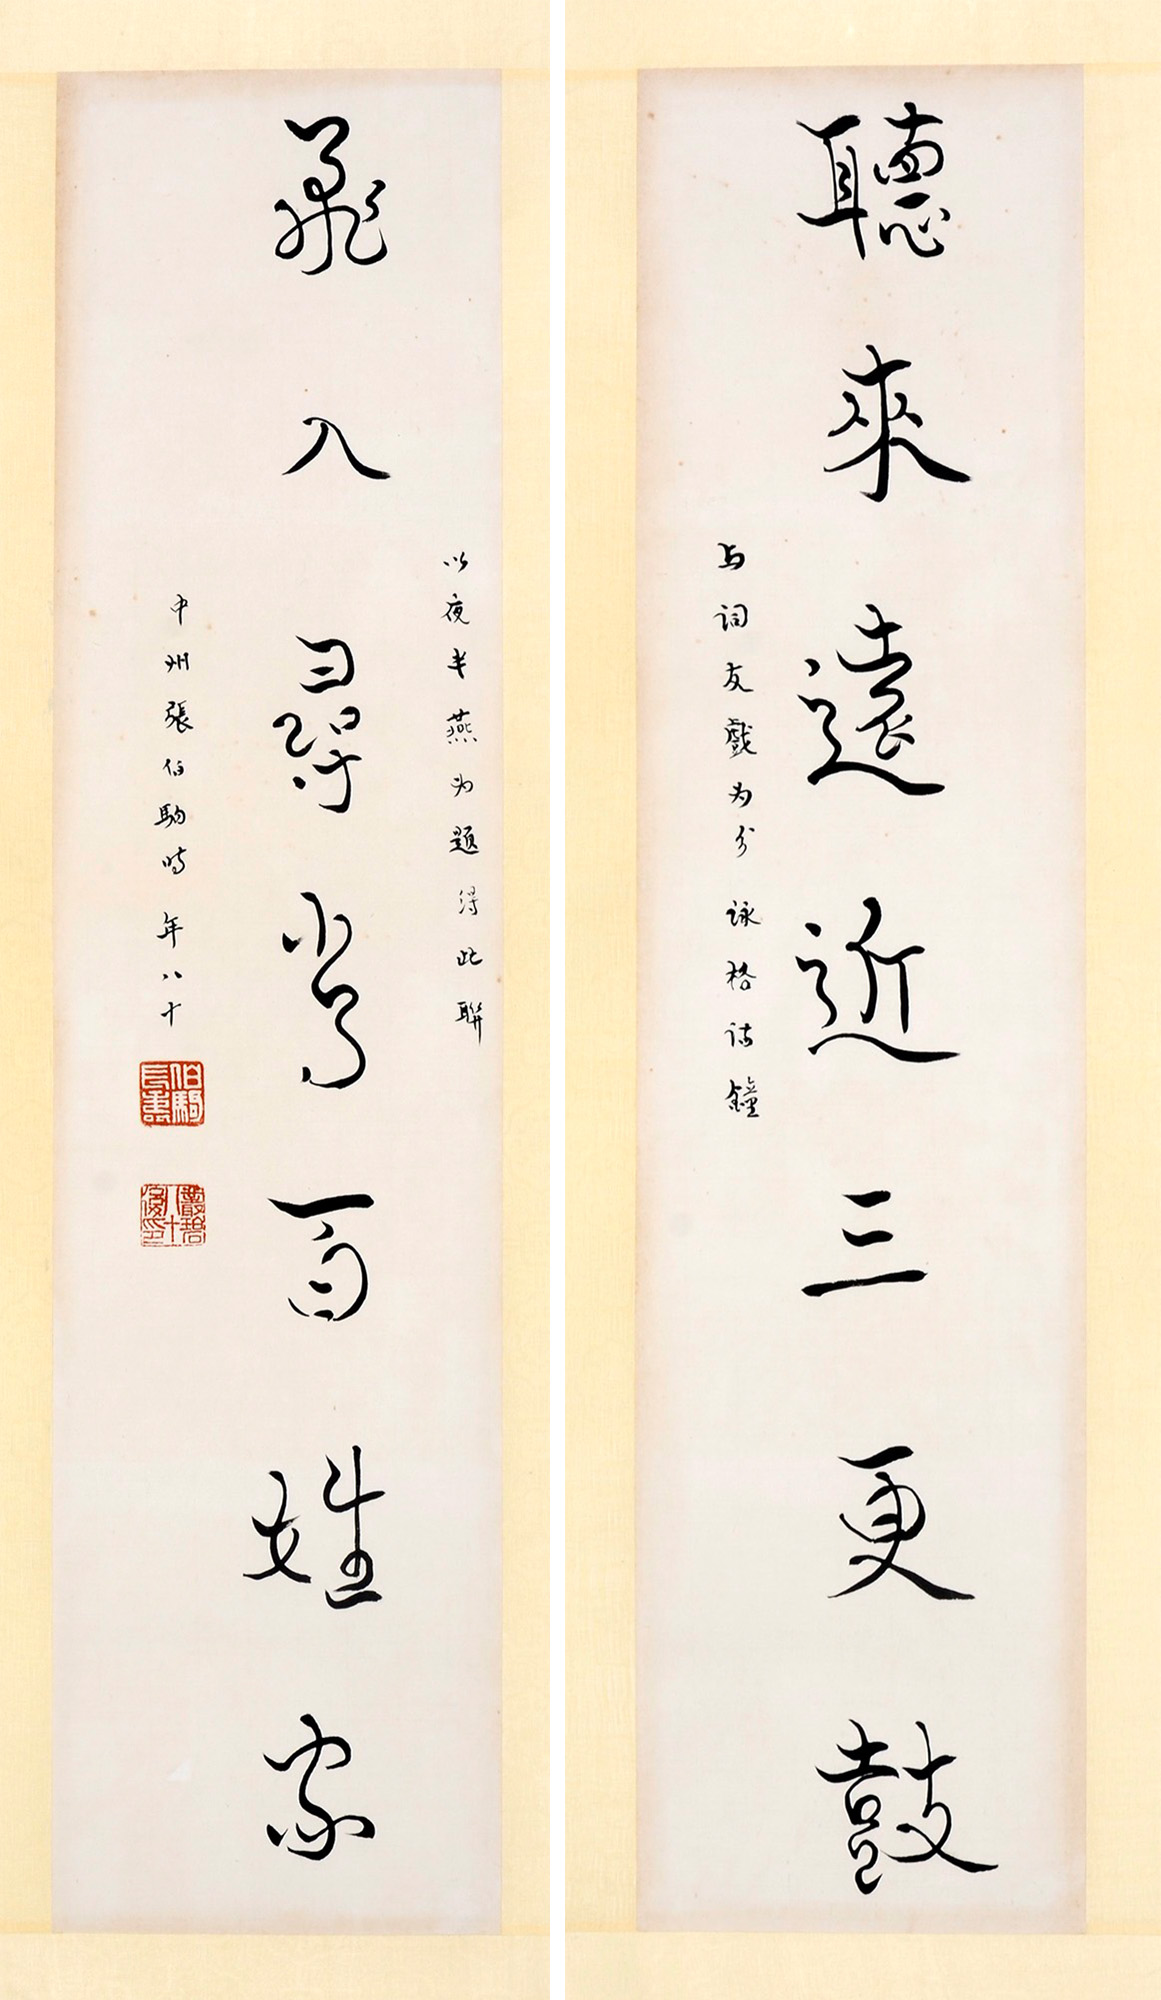 聽來遠近三更鼓
与詞友戲为分詠格詩鐘
以夜半燕为題得此聯
飛入尋常百姓家
中州張伯駒時年八十
伯駒長壽
叢碧八十後印